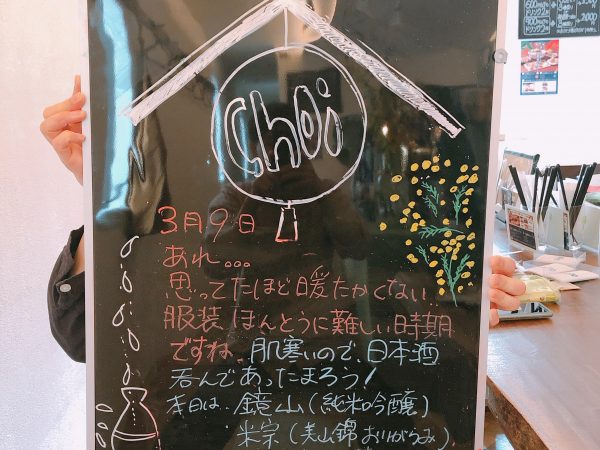 Choi
3月9日
あれ。。。
思ってたほど暖たかくない..
服装ほんとうに難しい時期
ですね。肌寒いので、日本酒
呑んであったまろう!
本日は、鏡山(純米吟醸)
米宗(美山錦おりがらみ)